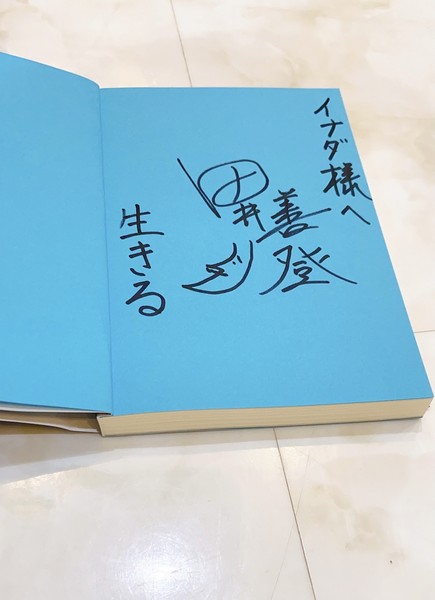 イナダ様へ
善登
井
生きる